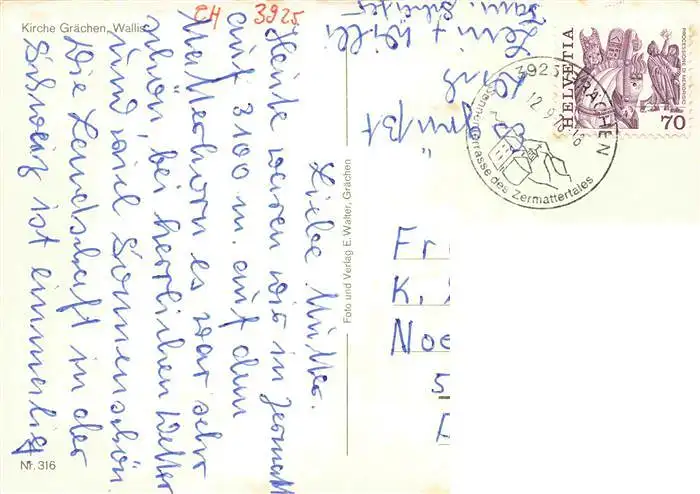 Kirche Grächen, Wallis
CH 3925
Liebe Mutter.
Heute waren wir in Zermatt
auf 3100 m. auf dem
Matterhorn es war sehr
schön, bei herrlichen Wetter
und viel Sonnenschön
Die Landschaft in der
Schweiz ist einmalig
Es grüßt
Leni + Willi
Fam.
Foto und Verlag E. Walter, Grächen
Nr. 316
HELVETIA
70
3925 GRÄCHEN
12.9.
Sonnenterrasse des Zermattertales
Fr
K.
Noe
5